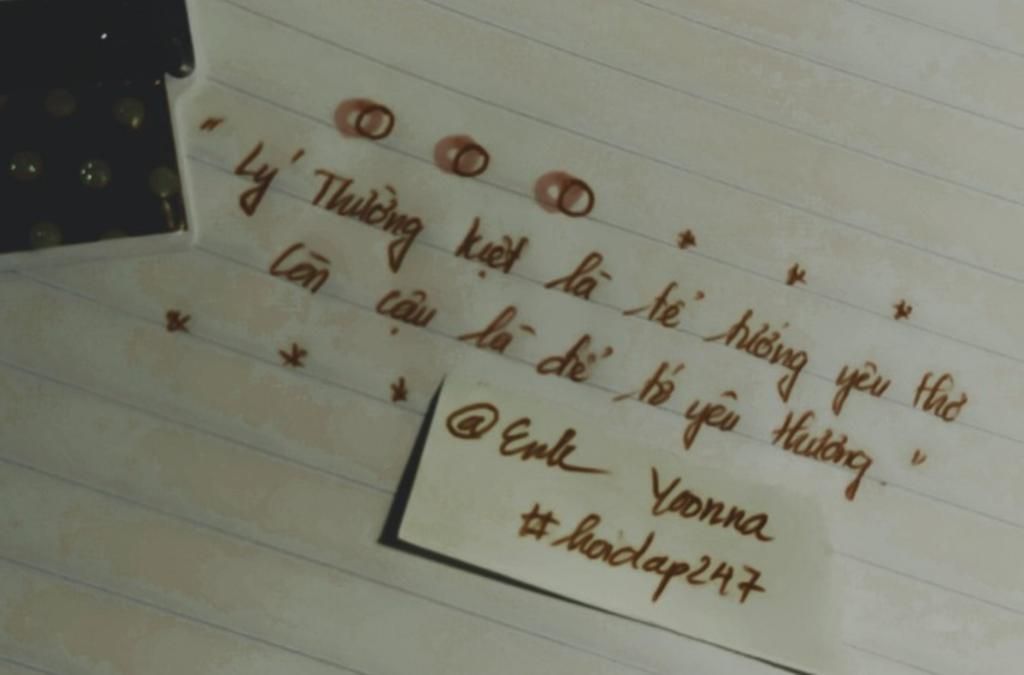 " Lý Thường kiệt là tể tướng yêu thơ
Còn cậu là để tớ yêu thương "
@Enk Yoonna
#hoidap247